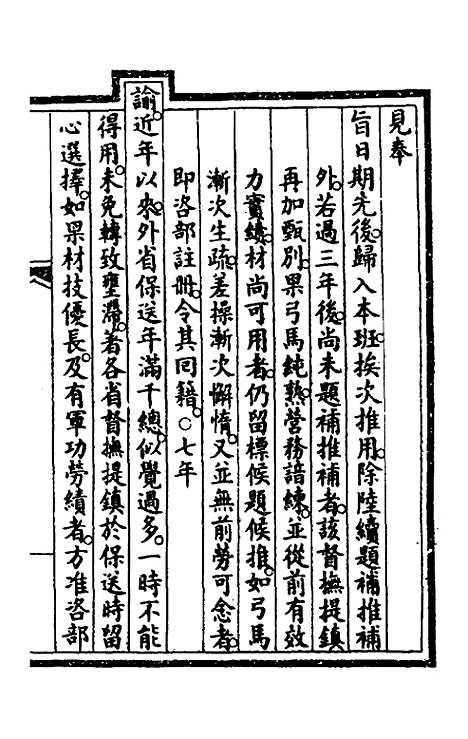 見奉
旨日期先後歸入本班挨次推用除陸續題補推補
外若過三年後尚未題補推補者該督撫提鎮
再加甄別果弓馬純熟營務諳練並從前有效
力實績材尚可用者仍留標候題候推如弓馬
漸次生疏差操漸次懈惰又並無前勞可念者
即咨部註冊令其回籍○七年
諭近年以來外省保送年滿千總似覺過多一時不能
得用未免轉致壅滯著各省督撫提鎮於保送時留
心選擇如果材技優長及有軍功勞績者方准咨部